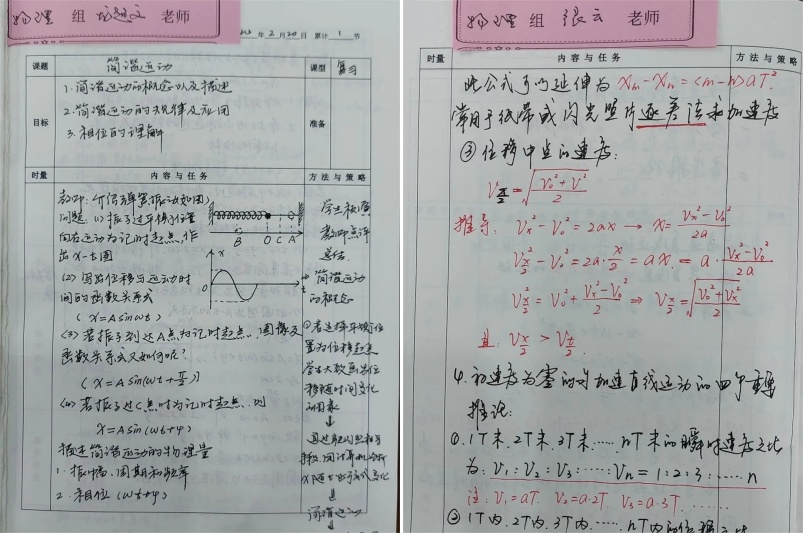 物理 组 老师
年 2 月 20 日 累计 1 节
课题 简谐运动 课型 复习
目标 准备
1. 简谐运动的概念以及描述
2. 简谐运动的规律及应用
3. 相位的理解
时量 内 容 与 任 务 方 法 与 策 略
问题: (1) 振子过平衡位置
向右运动为记时起点, 作
出 x-t 图
(2) 写出位移与运动时
间的函数关系式
( x=Asinωt )
(3) 若振子到达A点为记时起点, 图像及
函数关系式又如何呢?
( x=Asin(ωt+π/2) )
(4) 若振子过C点时为记时起点, 则
x=Asin(ωt+φ)
描述简谐运动的物理量
1. 振幅、周期和频率
2. 相位 (ωt+φ)
B O C A
x
O
t
教师点评
总结
↓
简谐运动
的概念
↓
↓
简谐运动
↓
物理 组 张云 老师
时量 内 容 与 任 务 方 法 与 策 略
此公式可以延伸为 Xm-Xn=(m-n)aT².
常用于纸带或闪光照片逐差法求加速度
③ 位移中点的速度:
V x/2 = √((V₀²+V²)/2)
推导: Vx²-V₀²=2ax → x=(Vx²-V₀²)/2a
V x/2²-V₀²=2a·x/2=ax=a·(Vx²-V₀²)/2a
V x/2²=V₀²+(Vx²-V₀²)/2 ⇒ V x/2=√((V₀²+Vx²)/2)
且: V x/2 > V t/2
4. 初速度为零的匀加速直线运动的四个重要
推论:
①. 1T末、2T末、3T末、……nT末的瞬时速度之比
为: V₁:V₂:V₃:……Vn=1:2:3:……n
注: V₁=aT. V₂=a·2T. V₃=a·3T. ……
② 1T内、2T内、3T内、……nT内的位移之比